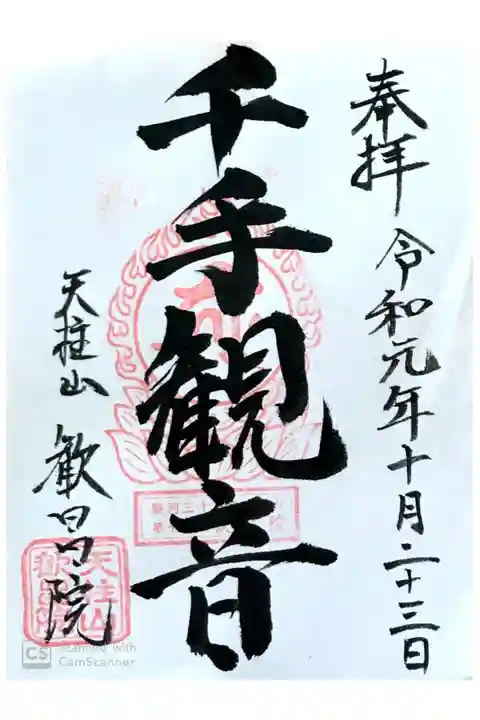 奉拝 令和元年十月二十三日
千手観音
天柱山 歓昌院
天柱山
CS Scanned with
CamScanner